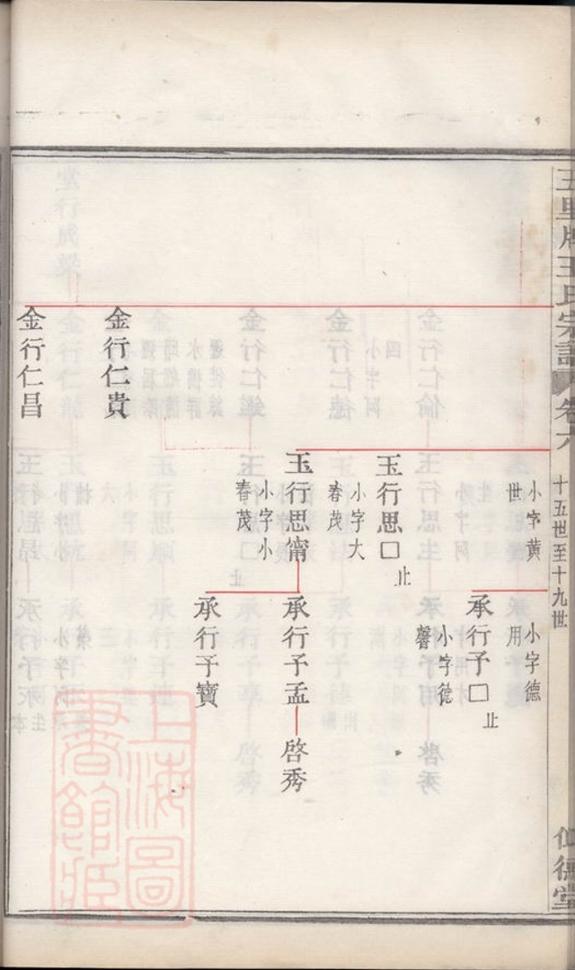 五里牌王氏宗譜
卷六
十五世至十九世
小字黄
世
小字德
用
承行子□
止
小字從
玉行思□
止
小字大
春茂
玉行思甯
小字小
春茂
承行子孟
啓秀
承行子寶
金行仁貴
金行仁昌
上海圖
書館藏